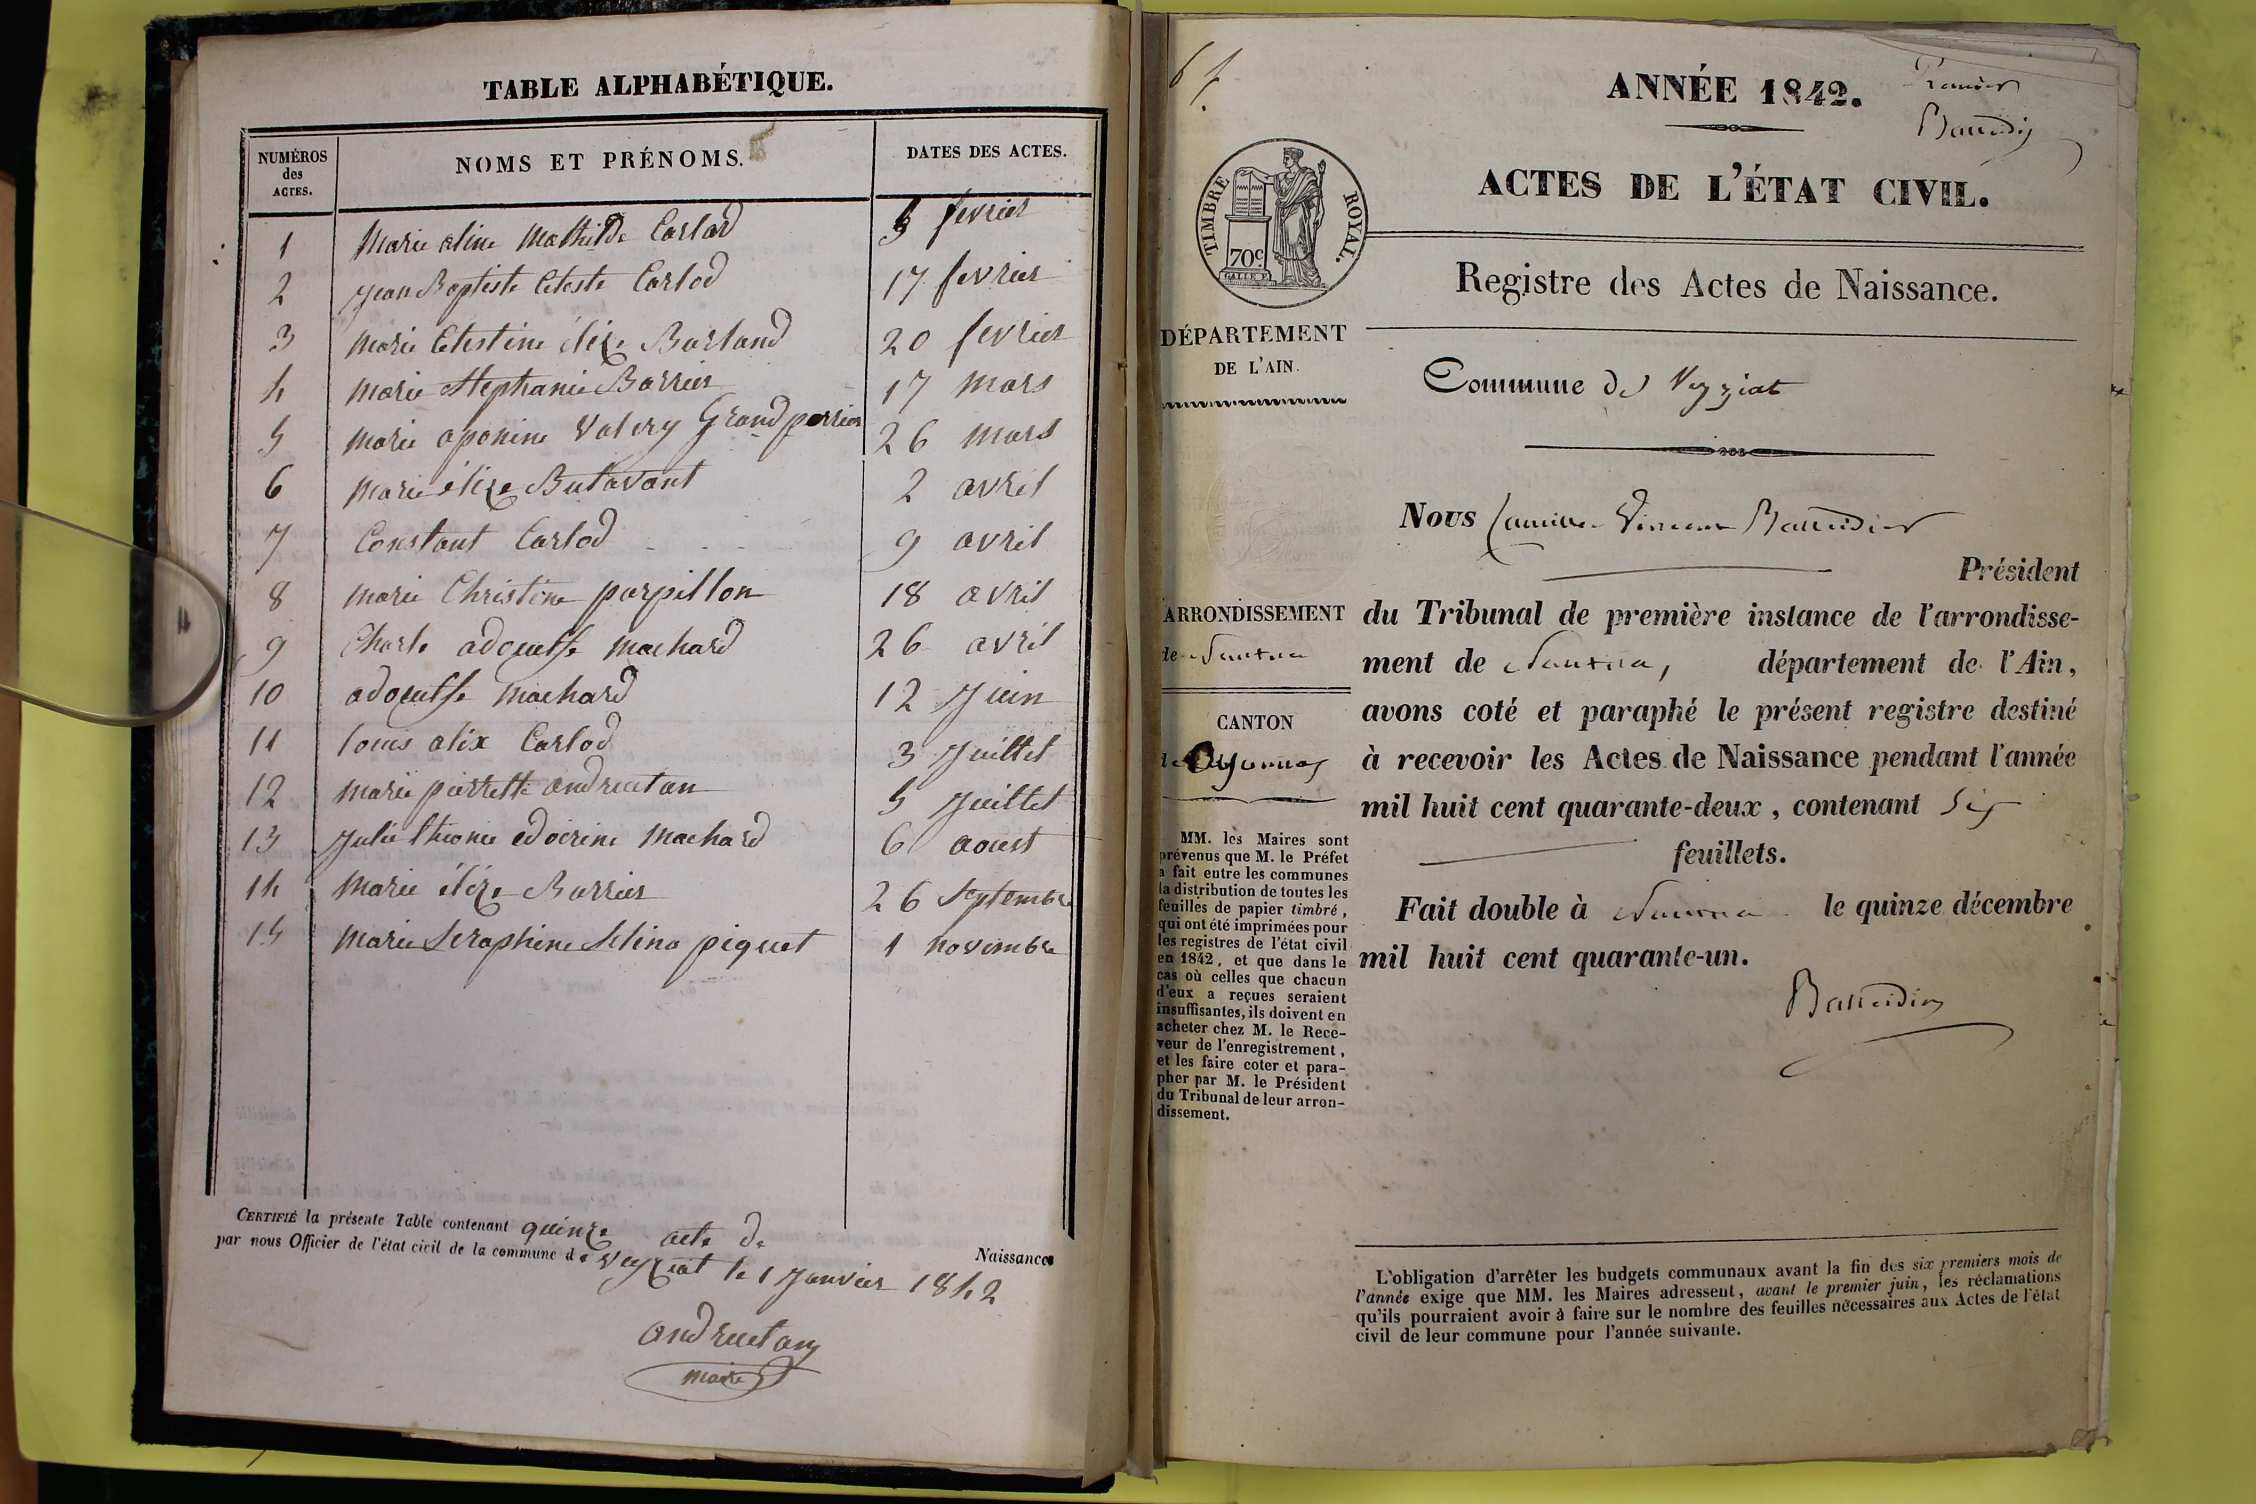 TABLE ALPHABÉTIQUE.
NUMÉROS des ACTES.
NOMS ET PRÉNOMS.
DATES DES ACTES.
1 Marie aline Mathilde Carlod 5 fevrier
2 Jean Baptiste Celeste Carlod 17 fevrier
3 Marie Celestine élize Burland 20 fevrier
4 Marie Stephanie Barrier 17 mars
5 Marie aponine Valery Grandperrier 26 mars
6 Marie élize Butavant 2 avril
7 Constant Carlod 9 avril
8 Marie Christine parpillon 18 avril
9 Charle machard 26 avril
10 machard 12 Juin
11 louis alix Carlod 3 Juillet
12 Marie pierrette andruetan 5 Juillet
13 Julie machard 6 aoust
14 Marie élize Barrier 26 Septembre
15 Marie Seraphine Selina piquet 1 novembre
CERTIFIÉ la présente Table contenant quinze acte de Naissances
par nous Officier de l'état civil de la commune de Veyziat le 1 Janvier 1842
andruetan
maire
6 f.
ANNÉE 1842.
Premier
Baudin
ACTES DE L'ÉTAT CIVIL.
TIMBRE ROYAL.
70c
Registre des Actes de Naissance.
DÉPARTEMENT
DE L'AIN.
Commune de Veyziat
Nous Camille Vincent
Président
ARRONDISSEMENT
de Nantua
CANTON
de Oyonnax
du Tribunal de première instance de l'arrondisse-
ment de Nantua, département de l'Ain,
avons coté et paraphé le présent registre destiné
à recevoir les Actes de Naissance pendant l'année
mil huit cent quarante-deux, contenant Six
feuillets.
Fait double à Nantua le quinze décembre
mil huit cent quarante-un.
MM. les Maires sont
prévenus que M. le Préfet
a fait entre les communes
la distribution de toutes les
feuilles de papier timbré,
qui ont été imprimées pour
les registres de l'état civil
en 1842, et que dans le
cas où celles que chacun
d'eux a reçues seraient
insuffisantes, ils doivent en
acheter chez M. le Rece-
veur de l'enregistrement,
et les faire coter et para-
pher par M. le Président
du Tribunal de leur arron-
dissement.
L'obligation d'arrêter les budgets communaux avant la fin des six premiers mois de
l'année exige que MM. les Maires adressent, avant le premier juin, les réclamations
qu'ils pourraient avoir à faire sur le nombre des feuilles nécessaires aux Actes de l'état
civil de leur commune pour l'année suivante.